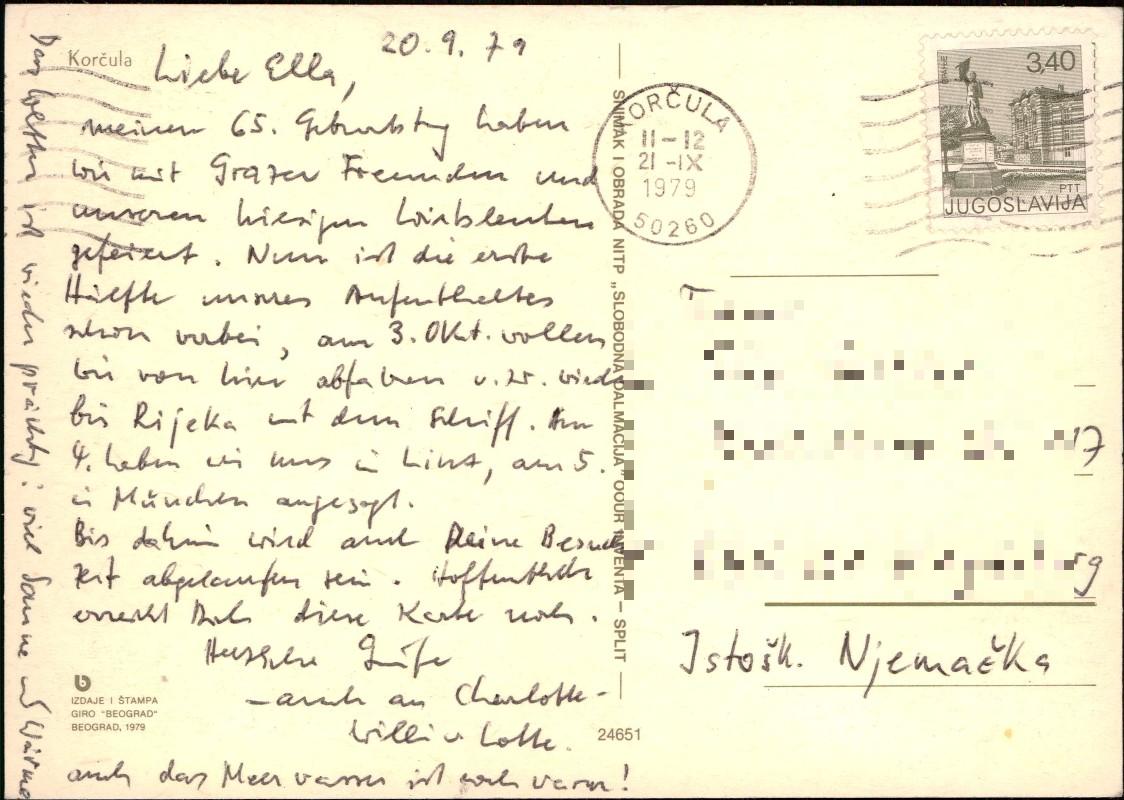 Korčula
20.9.79
Liebe Ella,
meinen 65. Geburtstag haben
wir mit Grazer Freunden und
unseren hiesigen Wirtsleuten
gefeiert. Nun ist die erste
Hälfte unseres Aufenthaltes
schon vorbei, am 3. Okt. wollen
wir von hier abfahren u. zw. wieder
bis Rijeka mit dem Schiff. Am
4. haben wir uns in Linz, am 5.
in München angesagt.
Bis dahin wird auch Deine Besuchs
zeit abgelaufen sein. Hoffentlich
erreicht Dich diese Karte noch.
Herzliche Grüße
- auch an Charlotte -
Willi u Lotte.
auch das Meerwasser ist noch warm!
Das Wetter ist wieder prächtig: viel Sonne und Wärme
IZDAJE I ŠTAMPA
GIRO "BEOGRAD"
BEOGRAD, 1979
SNIMAK I OBRADA NITP „SLOBODNA DALMACIJA" OOUR INVENTA – SPLIT
24651
KORČULA
11-12
21-IX
1979
50260
3,40
PTT
JUGOSLAVIJA
17
rg
Istočk. Njemačka